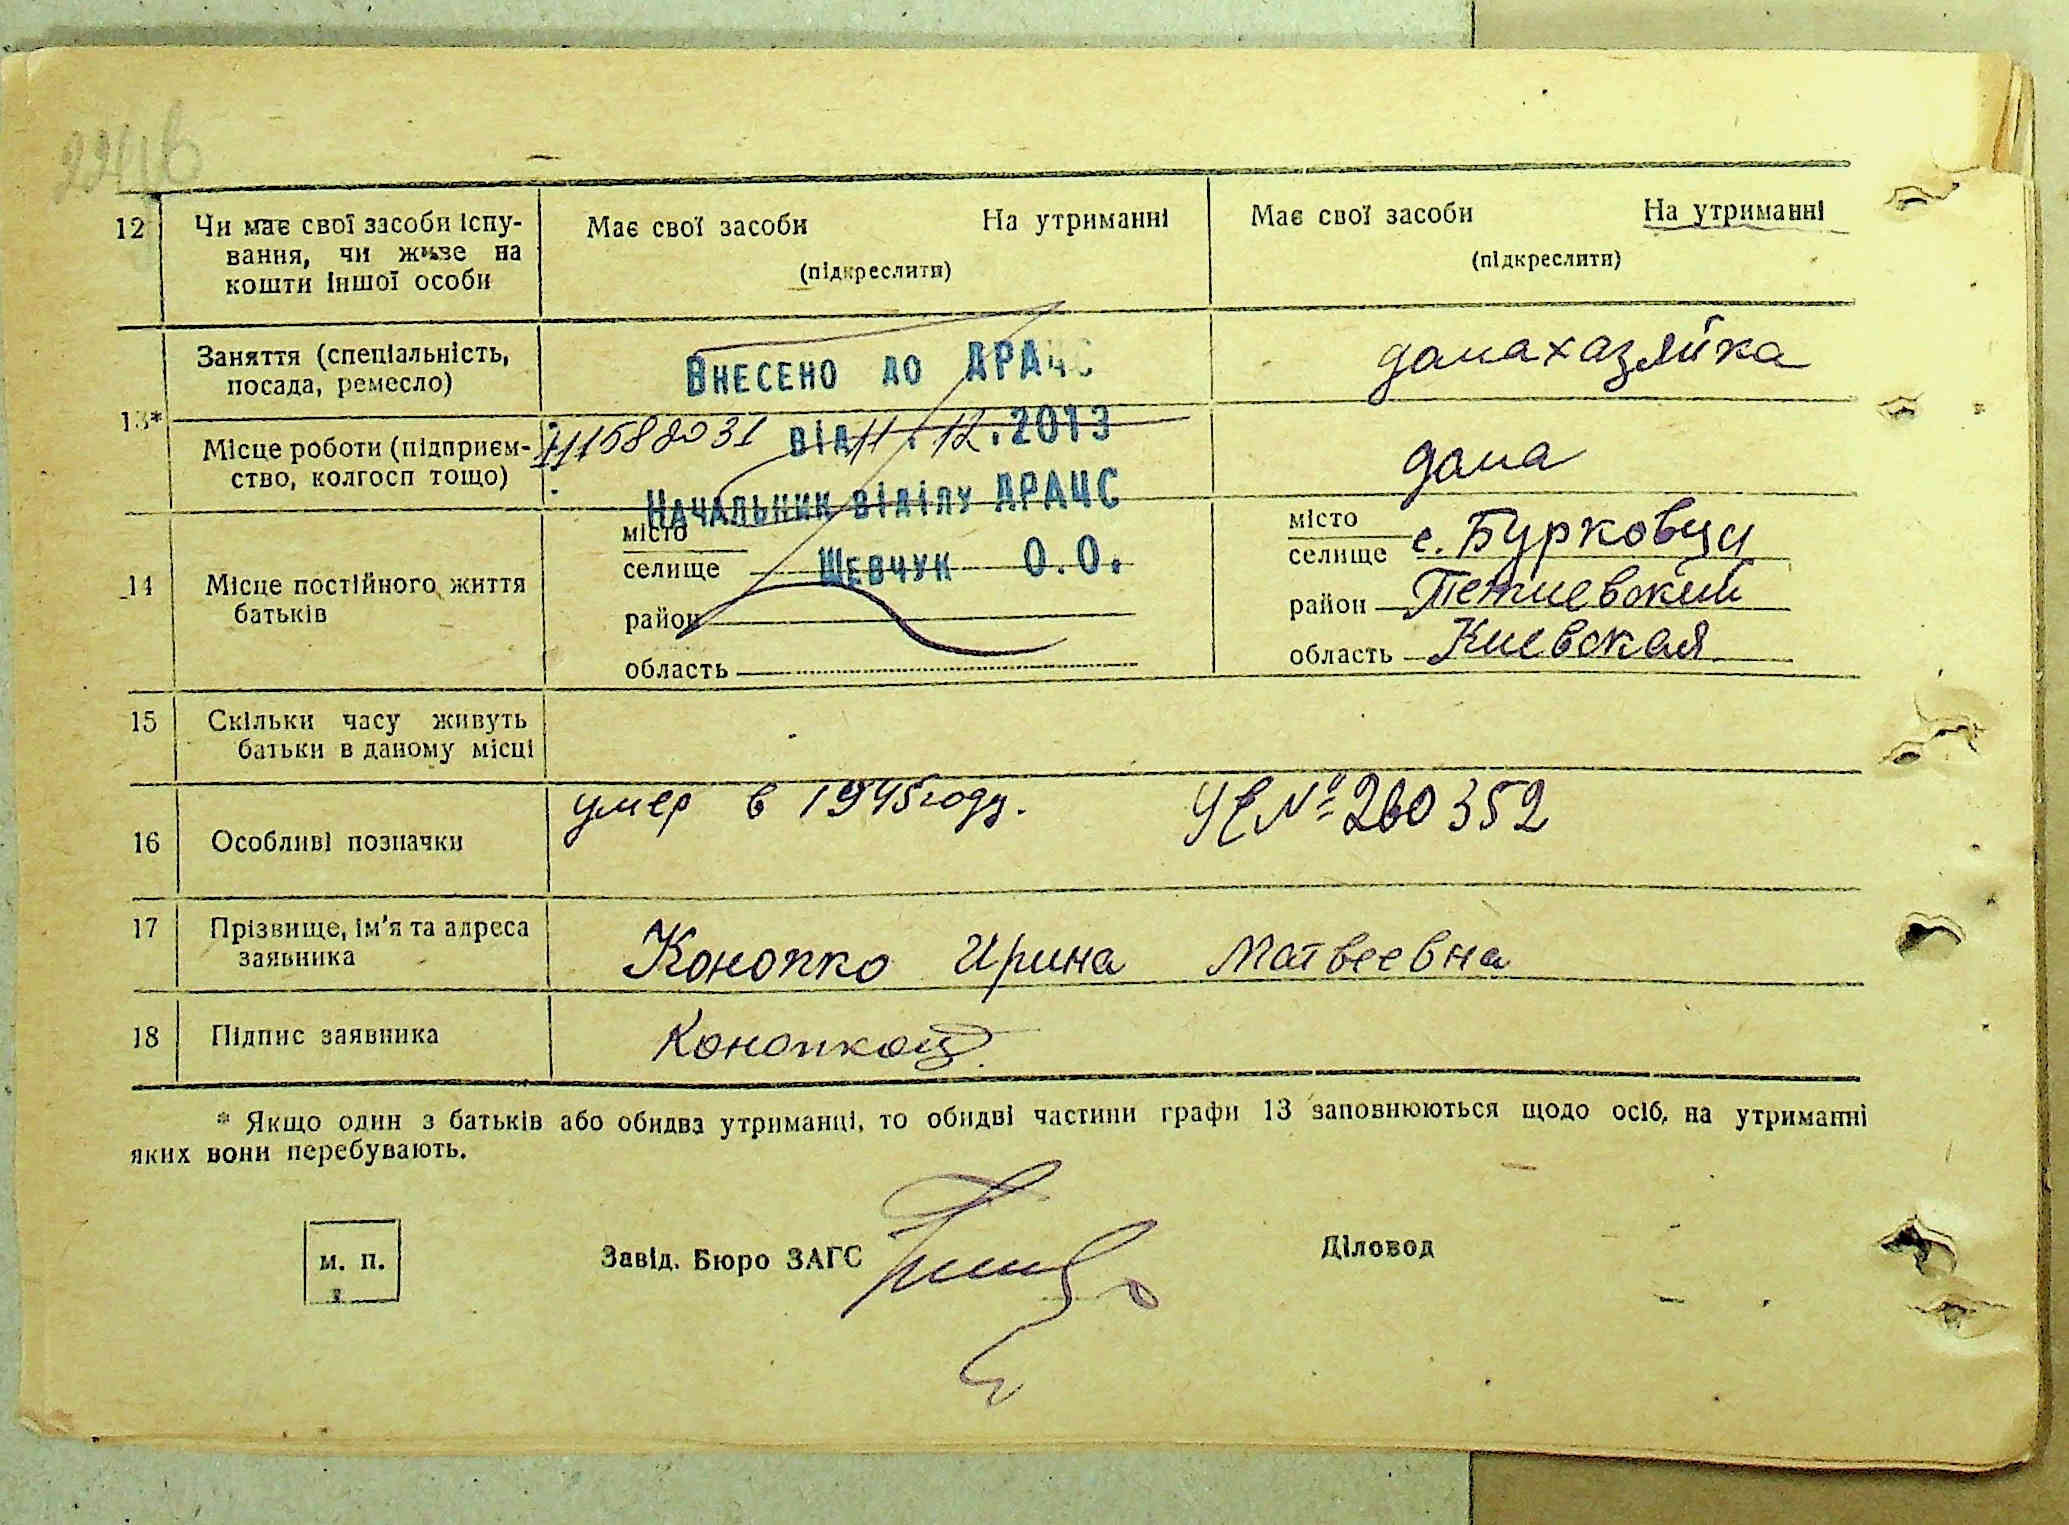 224 в
12 Чи має свої засоби існу-
вання, чи живе на
кошти іншої особи
Має свої засоби На утриманні
(підкреслити)
Має свої засоби На утриманні
(підкреслити)
13*
Заняття (спеціальність,
посада, ремесло)
Внесено до ДРАЦС
домахазяйка
Місце роботи (підприєм-
ство, колгосп тощо)
від 11.12.2013
Начальник відділу ДРАЦС
Шевчук О.О.
дома
14 Місце постійного життя
батьків
місто
селище
район
область
місто
селище с. Бурковци
район Тетиевский
область Киевская
15 Скільки часу живуть
батьки в даному місці
16 Особливі позначки
умер в 1945 году. УЕ № 260352
17 Прізвище, ім'я та адреса
заявника
Конопко Ирина Матвеевна
18 Підпис заявника
* Якщо один з батьків або обидва утриманці, то обидві частини графи 13 заповнюються щодо осіб, на утриманні
яких вони перебувають.
м. п.
Завід. Бюро ЗАГС
Діловод